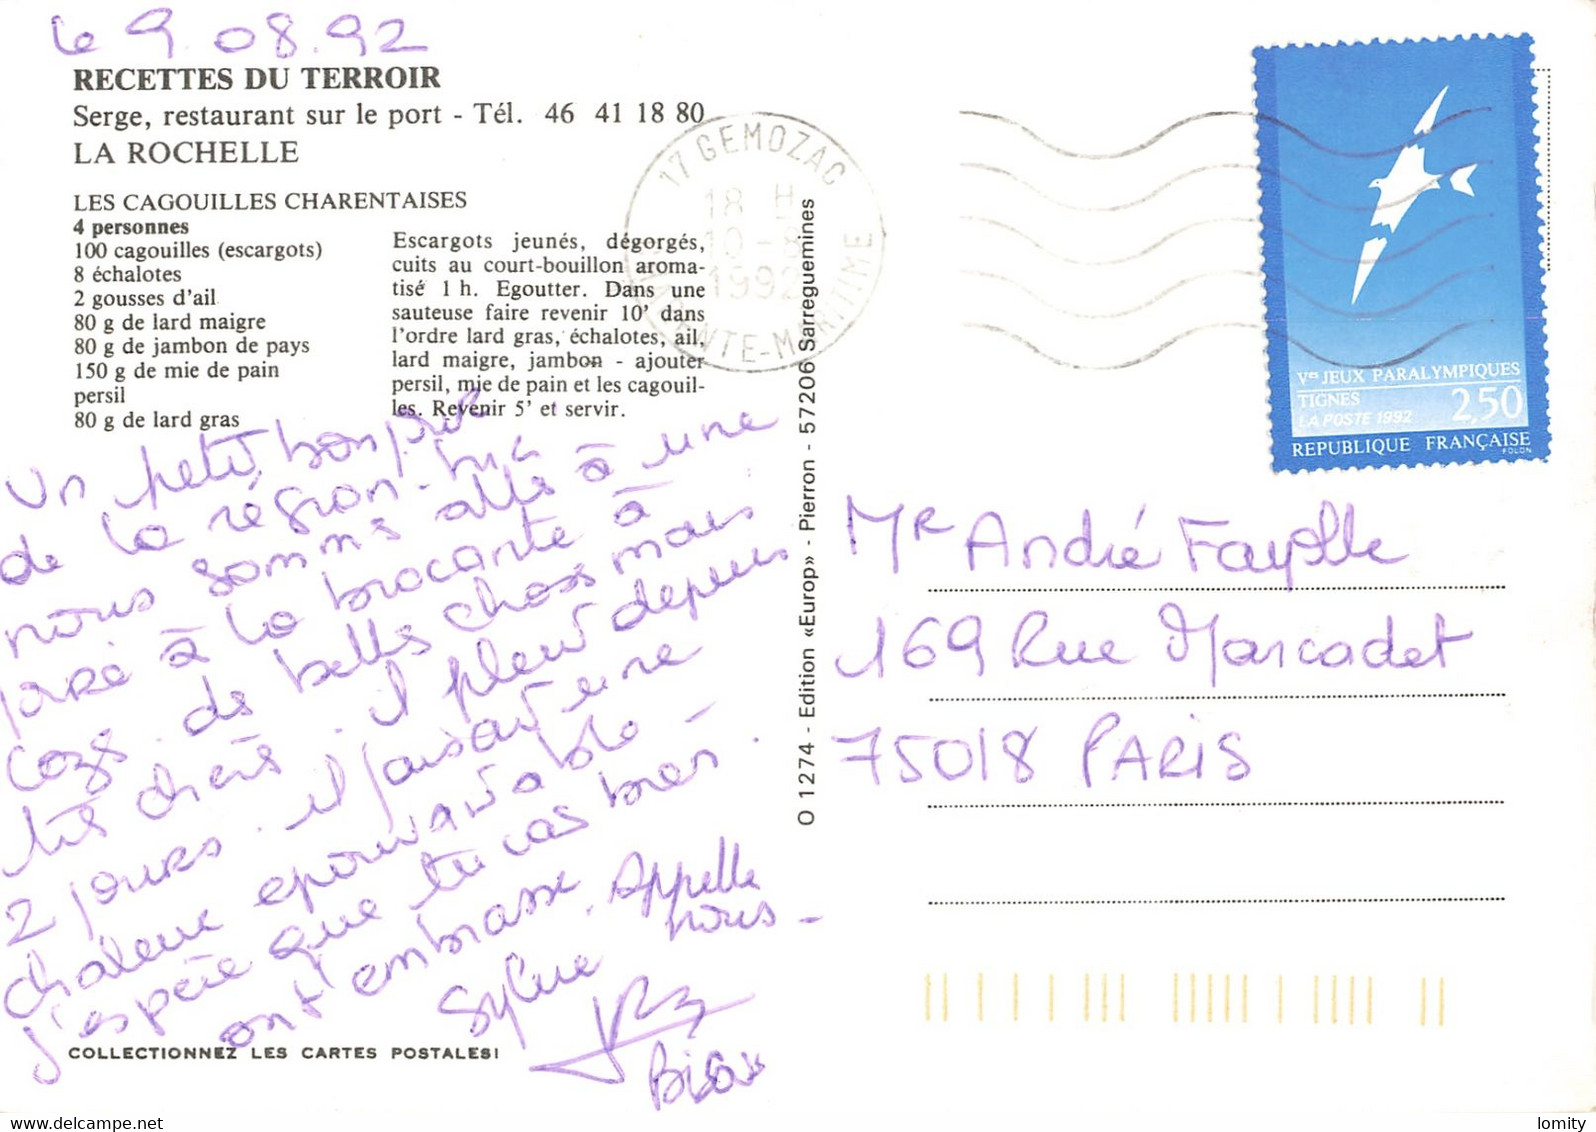 le 9.08.92
RECETTES DU TERROIR
Serge, restaurant sur le port - Tél. 46 41 18 80
LA ROCHELLE
LES CAGOUILLES CHARENTAISES
4 personnes
100 cagouilles (escargots)
8 échalotes
2 gousses d'ail
80 g de lard maigre
80 g de jambon de pays
150 g de mie de pain
persil
80 g de lard gras
Escargots jeunés, dégorgés,
cuits au court-bouillon aroma-
tisé 1 h. Egoutter. Dans une
sauteuse faire revenir 10' dans
l'ordre lard gras, échalotes, ail,
lard maigre, jambon - ajouter
persil, mie de pain et les cagouil-
les. Revenir 5' et servir.
Un petit bonjour
de la région.
nous sommes allés à une
à la brocante à
Cozes. de belles choses mais
très chers. il pleut depuis
2 jours. il faisait une
chaleur épouvantable -
J'espère que tu vas bien.
on t'embrasse. Appelle
nous -
Sylvie
Bisous
COLLECTIONNEZ LES CARTES POSTALES!
O 1274 - Edition «Europ» - Pierron - 57206 Sarreguemines
17 GEMOZAC
18 H
10-8
1992
CHARENTE-MARITIME
Ves JEUX PARALYMPIQUES
TIGNES
LA POSTE 1992 2,50
REPUBLIQUE FRANÇAISE
FOLON
Mr André Fayolle
169 Rue Marcadet
75018 PARIS
lomity